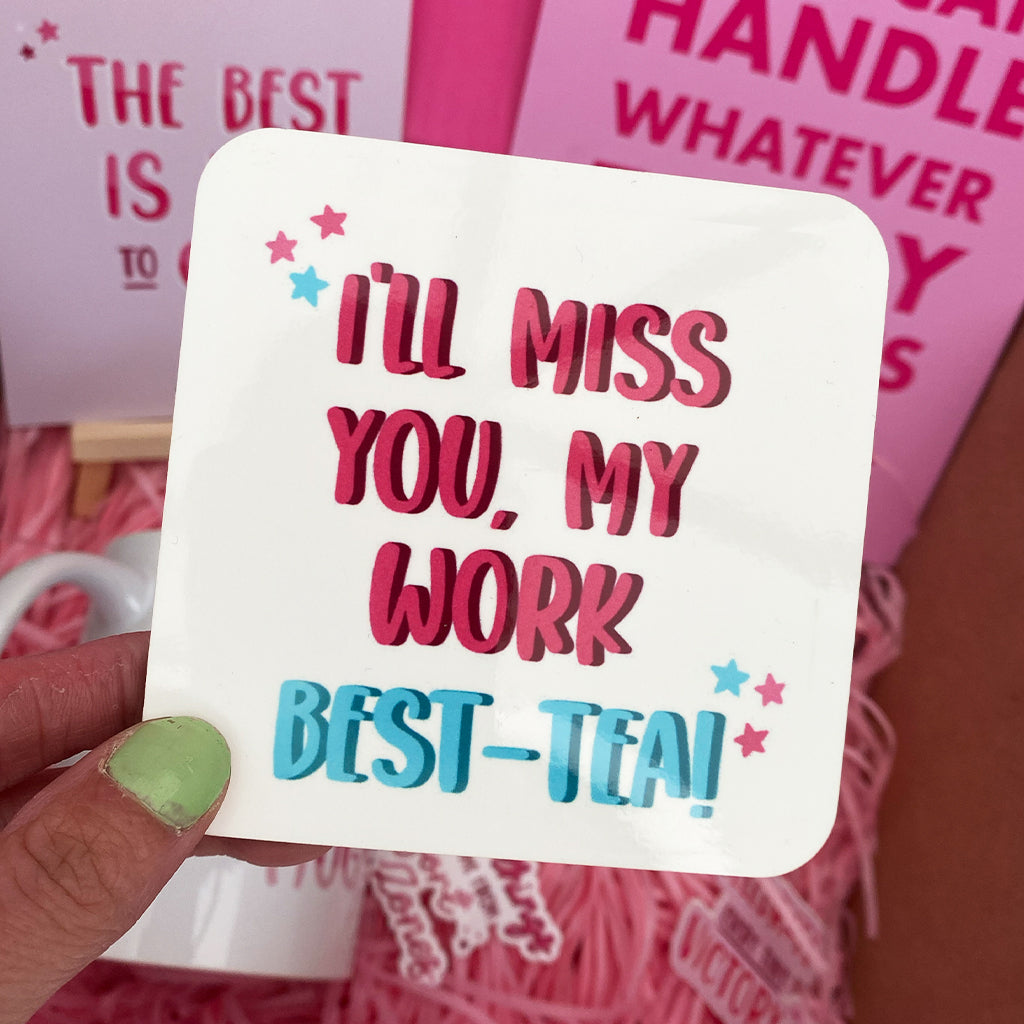 THE BEST
IS
TO
HANDLE
WHATEVER
I'LL MISS
YOU, MY
WORK
BEST-TEA!